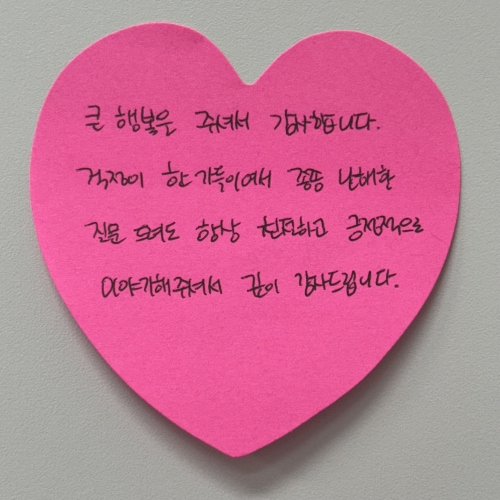 큰 행복은 주셔서 감사합니다.
걱정이 한가득이여서 종종 난해한
질문 드려도 항상 친절하고 긍정적으로
이야기해주셔서 깊이 감사드립니다.